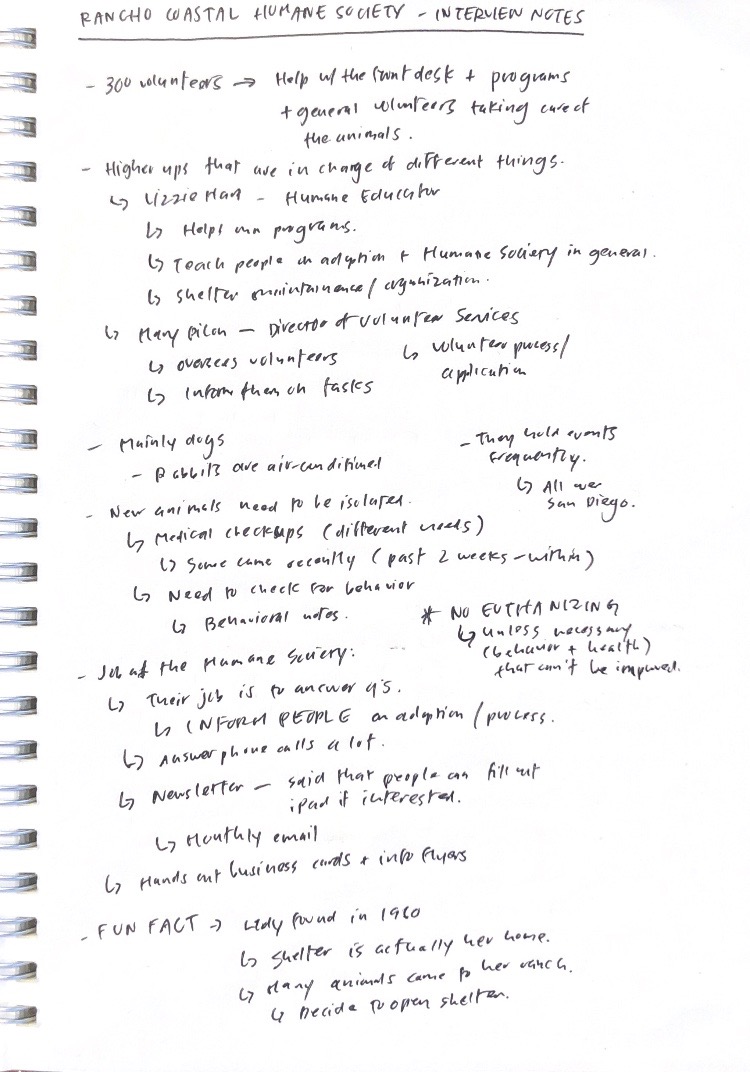 RANCHO COASTAL HUMANE SOCIETY - INTERVIEW NOTES
- 300 volunteers → Help w/ the front desk + programs
+ general volunteers taking care of
the animals.
- Higher ups that are in charge of different things.
↳ Lizzie - Humane Educator
↳ Helps run programs.
↳ Teach people on adoption + Humane Society in general.
↳ Shelter maintainence / organization.
↳ Mary - Director of Volunteer Services
↳ oversees volunteers
↳ Inform them on tasks
↳ Volunteer process /
application
- Mainly dogs
- Rabbits are air-conditioned
- They hold events
frequently.
↳ All over
San Diego.
- New animals need to be isolated.
↳ Medical checkups (different needs)
↳ Some came recently (past 2 weeks - within)
↳ Need to check for behavior
↳ Behavioral notes.
* NO EUTHANIZING
↳ Unless necessary
(behavior + health)
that can't be improved.
- Job at the Humane Society:
↳ Their job is to answer q's.
↳ INFORM PEOPLE on adoption / process.
↳ Answer phone calls a lot.
↳ Newsletter - said that people can fill out
ipad if interested.
↳ Monthly email
↳ Hands out business cards + info flyers
- FUN FACT → Lady found in 1960
↳ Shelter is actually her home.
↳ Many animals came to her ranch.
↳ Decide to open shelter.